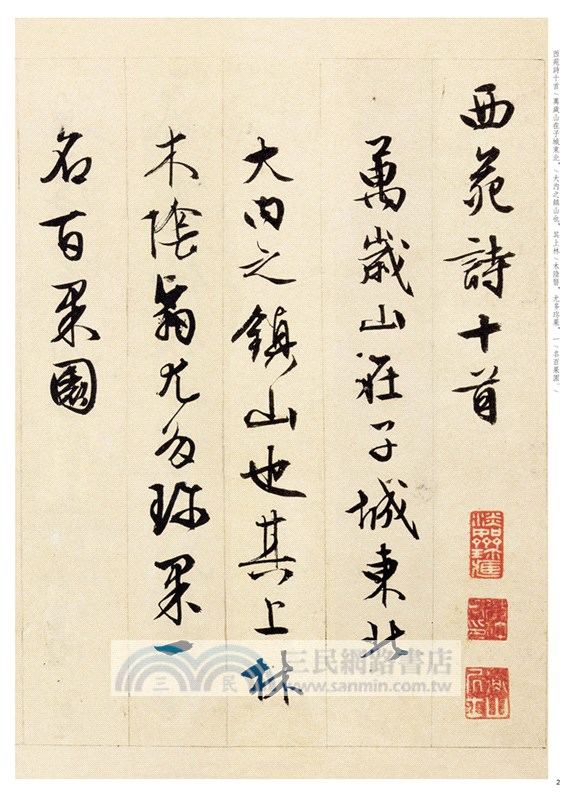 西苑詩十首\萬歲山在子城東北。\大內之鎮山也。其上林\木陰翳。尤多珍果。一\名百果園。\
西苑詩十首
萬歲山在子城東北
大內之鎮山也其上林
木陰翳尤多珍果一
名百果園
三民
三民網路書店
www.sanmin.com.tw
2